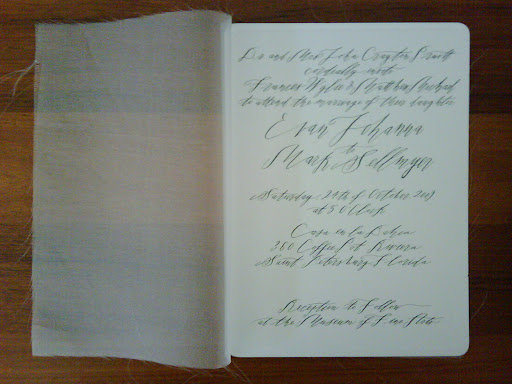 Dr and Mrs John Crayton Pruitt
cordially invite
Frances Wylie & Matthew Micheal
to attend the marriage of their daughter
Evan Johanna
to
Mark Sellmyer
Saturday 24th of October 2009
at 5 O'Clock
Casa en la
360 Coffee Pot Riviera
Saint Petersburg Florida
Reception to Follow
at the Museum of Fine Arts